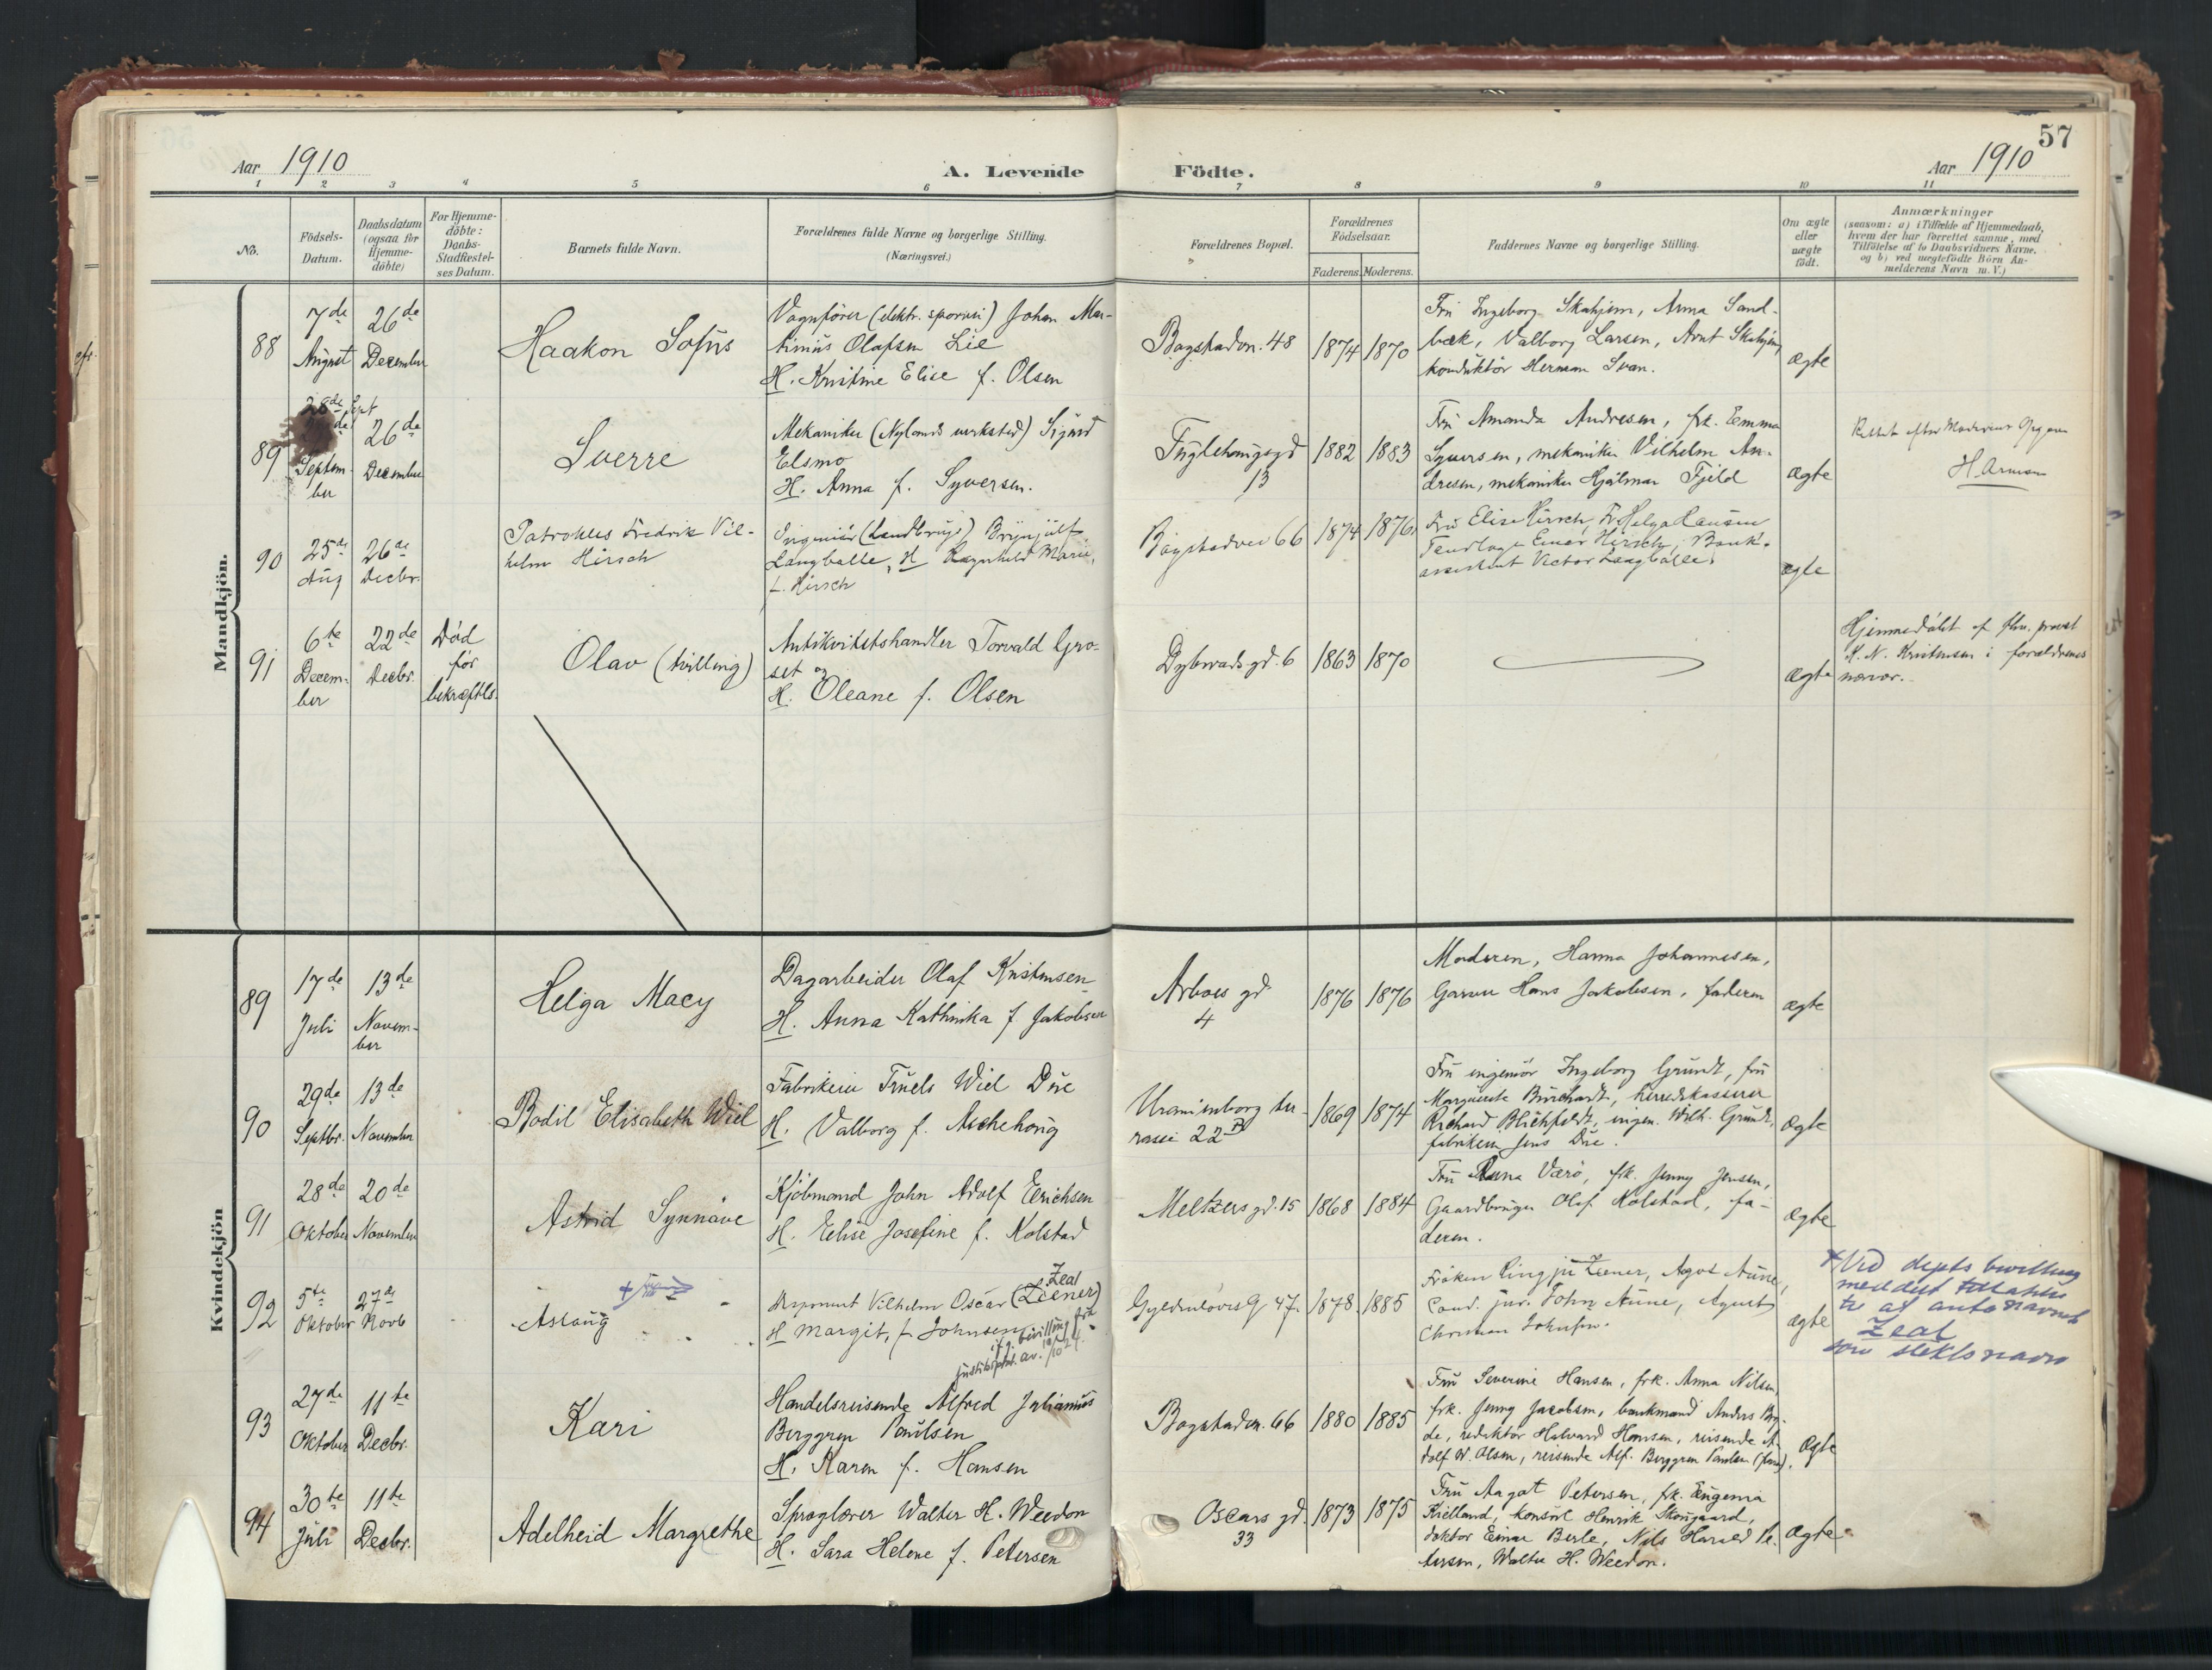 57
Aar 1910
A. Levende
Födte.
Aar 1910
1 2 3 4 5 6 7 8 9 10 11
No.
Födsels-
Datum.
Daabsdatum
(ogsaa for
Hjemme-
döbte)
For Hjemme-
döbte:
Daabs-
Stadfæstel-
ses Datum.
Barnets fulde Navn.
Forældrenes fulde Navne og borgerlige Stilling.
(Næringsvei.)
Forældrenes Bopæl.
Forældrenes
Födselsaar.
Faderens. Moderens.
Faddernes Navne og borgerlige Stilling.
Om ægte
eller
uægte
födt.
Anmærkninger
(saasom: a) i Tilfælde af Hjemmedaab,
hvem der har forrettet samme, med
Tilföielse af to Daabsvidners Navne,
og b) ved uægtefödte Börn An-
melderens Navn m. V.)
Mandkjön.
88
7de
August
26de
December
Haakon Sofus
Vognfører (elektr. sporvei) Johan Mar-
tinius Olafsen Lie
H. Kristine Elise f. Olsen
Bogstadvn. 48
1874
1870
Fru Ingeborg Skahjem, Anna Sand-
bæk, Valborg Larsen, Arnt Skahjem,
konduktör Herman Svan.
ægte
89
28de Sept
Septem-
ber
26de
December
Sverre
Mekaniker (Nylands verksted) Sigurd
Elsmo
H. Anna f. Syversen.
Fuglehaugsgd
13
1882
1883
Fru Amanda Andresen, frk. Emma
Syversen, mekaniker Vilhelm An-
dresen, mekaniker Hjalmar Fjeld
ægte
Rettet efter Moderens Opgave
90
25de
Aug
26de
Decbr.
Patroklus Fredrik Vil-
helm Hirsch
Ingeniør (Landbrugs) Brynjulf
Langballe, H Ragnhild Marie,
f. Hirsch
Bogstadvei 66
1874
1876
Fru Elise Hirsch, Fr. Helga Hansen
Tandlæge Einar Hirsch, Bank-
assistent Victor Langballe.
ægte
91
6te
Decem-
ber
22de
Decbr.
Død
før
bekræftls.
Olav (tvilling)
Antikvitetshandler Torvald Gro-
set og
H. Oleane f. Olsen
Dybwadsgd. 6
1863
1870
ægte
Hjemmedøbt af fhv. provst
K. N. Kristensen i forældrenes
nærvær.
Kvindekjön
89
17de
Juli
13de
Novem-
ber
Helga Macy
Dagarbeider Olaf Kristensen
H. Anna Kathinka f. Jakobsen
Arboes gd
4
1876
1876
Moderen, Hanna Johannesen,
Garver Hans Jakobsen, faderen
ægte
90
29de
Septbr.
13de
November
Bodil Elisabeth Wiel
Fabrikeier Truels Wiel Due
H. Valborg f. Aschehoug
Uranienborg ter-
rasse 22 B
1869
1874
Fru ingeniør Ingeborg Grundt, fru
Margrete Burchardt, herredskasserer
Richard Blichfeldt, ingen. Wilh. Grundt,
fabrikeier Jens Due.
ægte
91
28de
Oktober
20de
November
Astrid Synnøve
Kjöbmand John Adolf Erichsen
H. Elise Josefine f. Kolstad
Meltzers gd. 15
1868
1884
Fru Anna Værö, frk. Jenny Jensen,
Gaardbruger Olaf Kolstad, fa-
deren.
ægte
92
5te
Oktober
27de
Novb
Aslaug
Zeal
Vilhelm Oscar (Zeener)
H Margit, f. Johnsen
ifg. bevilling fra
justisdept. av. 10/10 24.
Gyldenløvesg 47.
1878
1885
Frøken Zeener, Agot Aune,
Cand. jur. John Aune, August
Christian Johnsen.
ægte
+ Ved depts bevilling
meddelt tilladelse
til at anta navnet
Zeal
som slektsnavn
93
27de
Oktober
11te
Decbr.
Kari
Handelsreisende Alfred Julianus
Berggren Paulsen
H. Karen f. Hansen
Bogstadvn. 66
1880
1885
Fru Severine Hansen, frk. Anna Nilsen,
frk. Jenny Jacobsen, bankmand Anders By-
de, redaktör Halvard Hansen, reisende A-
dolf W. Olsen, reisende Alf. Berggren Paulsen (faren).
ægte
94
30te
Juli
11te
Decbr.
Adelheid Margrethe
Sproglærer Walter H. Weedon
H. Sara Helene f. Petersen
Oscars gd.
33
1873
1875
Fru Aagot Petersen, frk. Eugenia
Kielland, konsul Henrik Skougaard,
doktor Einar Berle, Nils Harald Pe-
tersen, Walter H. Weedon.
ægte